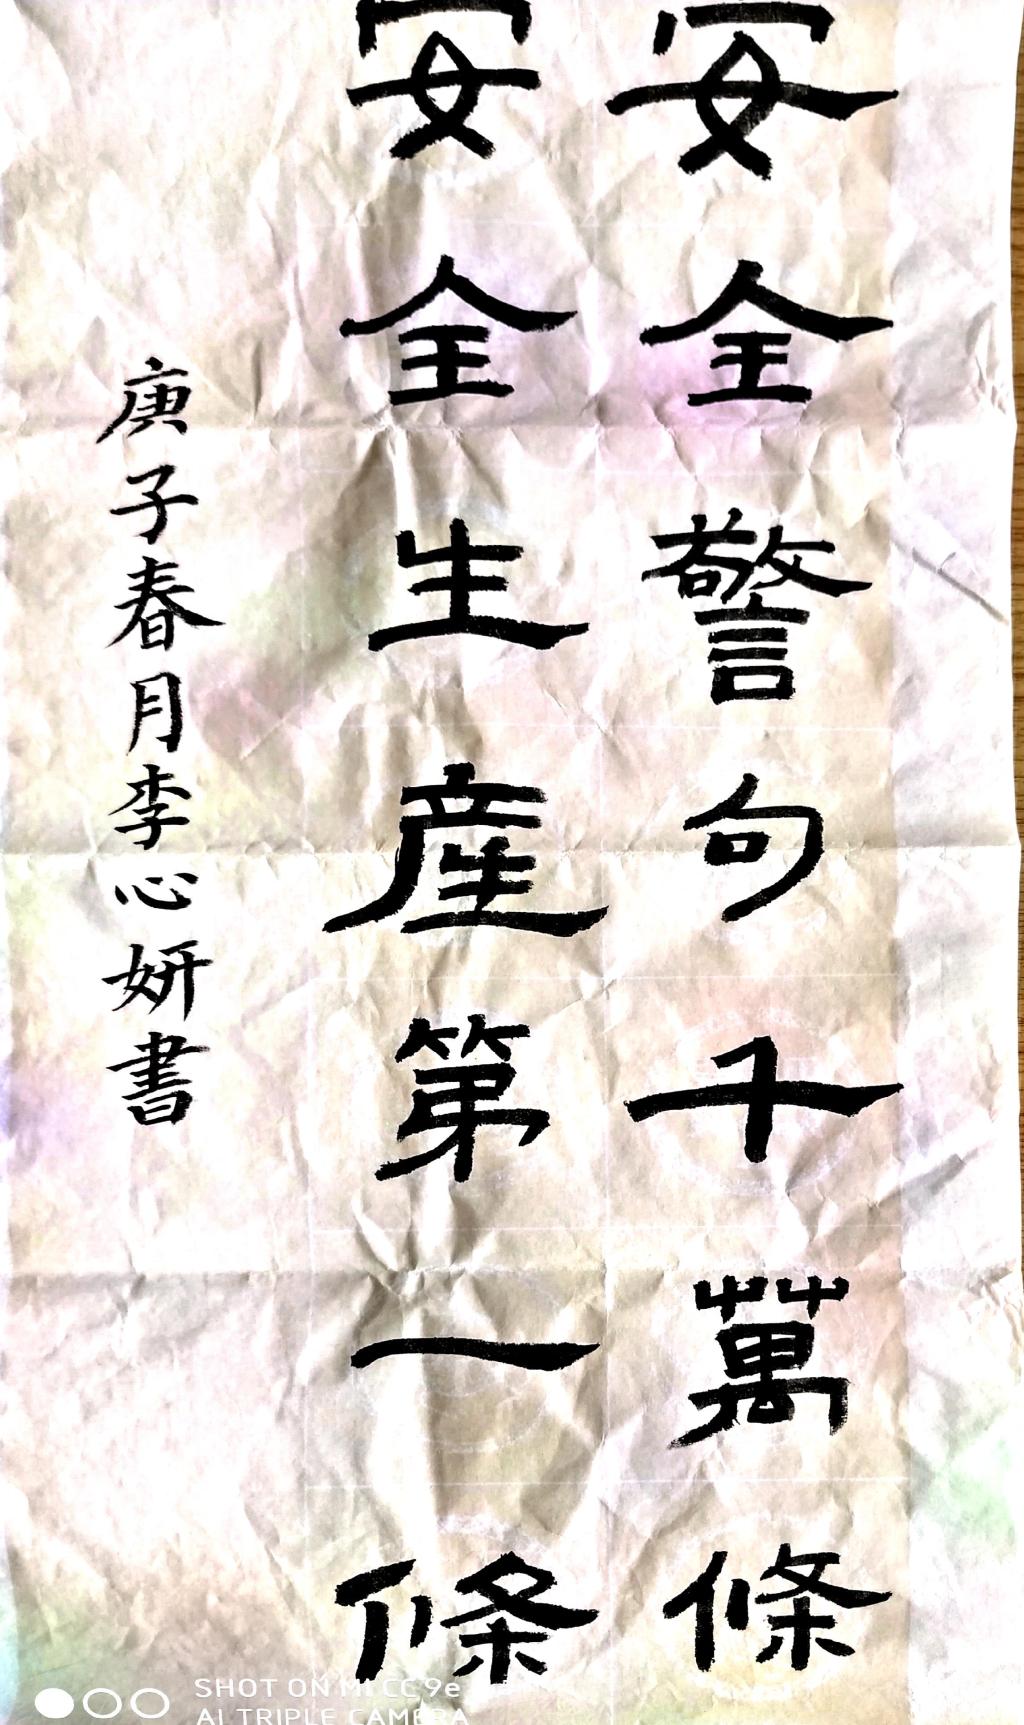 安全警句千萬條
安全生産第一條
庚子春月李心妍書
SHOT ON MI CC9e
AI TRIPLE CAMERA